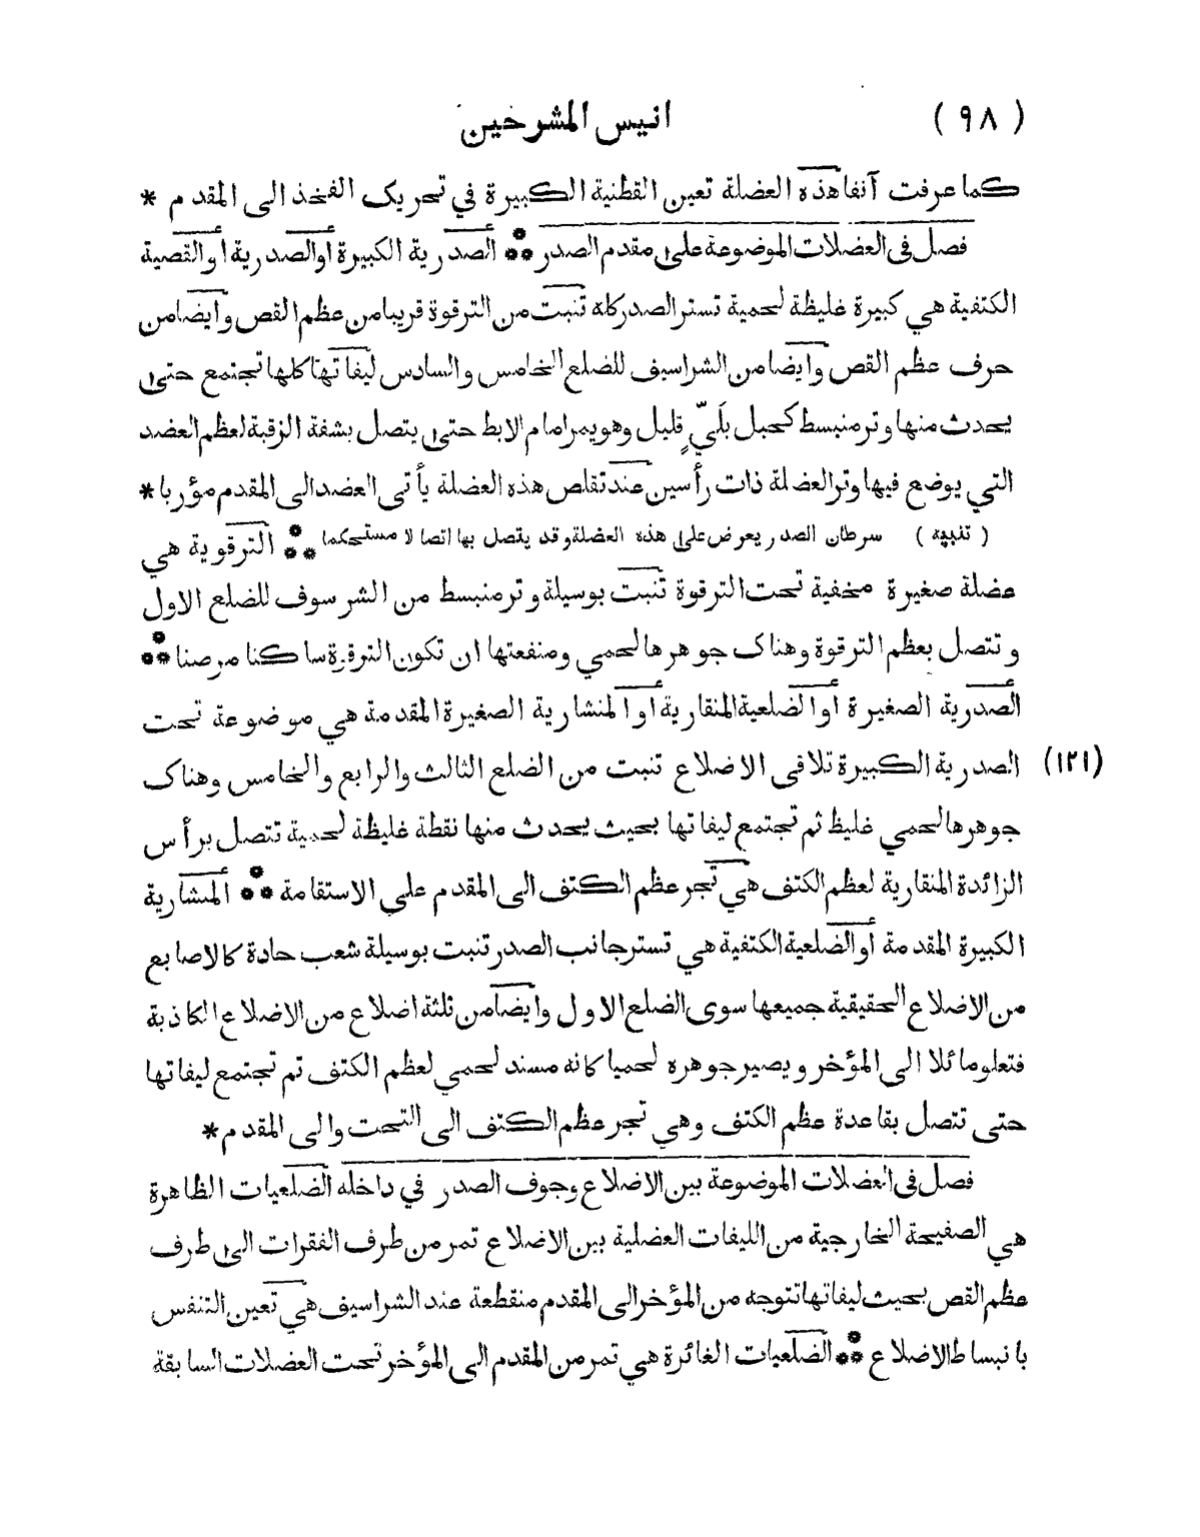 ( ٩٨ ) انيس المشرحين
كما عرفت آنفا هذه العضلة تعين القطنية الكبيرة في تحريك الفخذ الى المقدم *
فصل فى العضلات الموضوعة على مقدم الصدر ⁂ الصدرية الكبيرة أو الصدرية أو القصية
الكتفية هي كبيرة غليظة لحمية تستر الصدر كله تنبت من الترقوة قريبا من عظم القص وايضا من
حرف عظم القص وايضا من الشراسيف للضلع الخامس والسادس ليفاتها كلها تجتمع حتى
يحدث منها وتر منبسط كحبل بَلَيٍّ قليل وهو يمر امام الابط حتى يتصل بشفة الزقبة لعظم العضد
التي يوضع فيها وتر العضلة ذات رأسين عند تقلص هذه العضلة يأتى العضد الى المقدم مؤربا *
( تنبيه ) سرطان الصدر يعرض على هذه العضلة وقد يتصل بها اتصالا مستحكما ⁂ الترقوية هي
عضلة صغيرة مخفية تحت الترقوة تنبت بوسيلة وتر منبسط من الشرسوف للضلع الاول
وتتصل بعظم الترقوة وهناك جوهرها لحمي ومنفعتها ان تكون الترقوة ساكنا مرصنا ⁂
الصدرية الصغيرة أو الضلعية المنقارية أو المنشارية الصغيرة المقدمة هي موضوعة تحت
(١٢١) الصدرية الكبيرة تلاقى الاضلاع تنبت من الضلع الثالث والرابع والخامس وهناك
جوهرها لحمي غليظ ثم تجتمع ليفاتها بحيث يحدث منها نقطة غليظة لحمية تتصل برأس
الزائدة المنقارية لعظم الكتف هي تجر عظم الكتف الى المقدم على الاستقامة ⁂ المنشارية
الكبيرة المقدمة أو الضلعية الكتفية هي تستر جانب الصدر تنبت بوسيلة شعب حادة كالاصابع
من الاضلاع الحقيقية جميعها سوى الضلع الاول وايضا من ثلثة اضلاع من الاضلاع الكاذبة
فتعلو مائلا الى المؤخر ويصير جوهره لحميا كانه مسند لحمي لعظم الكتف ثم تجتمع ليفاتها
حتى تتصل بقاعدة عظم الكتف وهي تجر عظم الكتف الى التحت والى المقدم *
فصل فى العضلات الموضوعة بين الاضلاع وجوف الصدر في داخله الضلعيات الظاهرة
هي الصفيحة الخارجية من الليفات العضلية بين الاضلاع تمر من طرف الفقرات الى طرف
عظم القص بحيث ليفاتها تتوجه من المؤخر الى المقدم منقطعة عند الشراسيف هي تعين التنفس
بانبساط الاضلاع ⁂ الضلعيات الغائرة هي تمر من المقدم الى المؤخر تحت العضلات السابقة